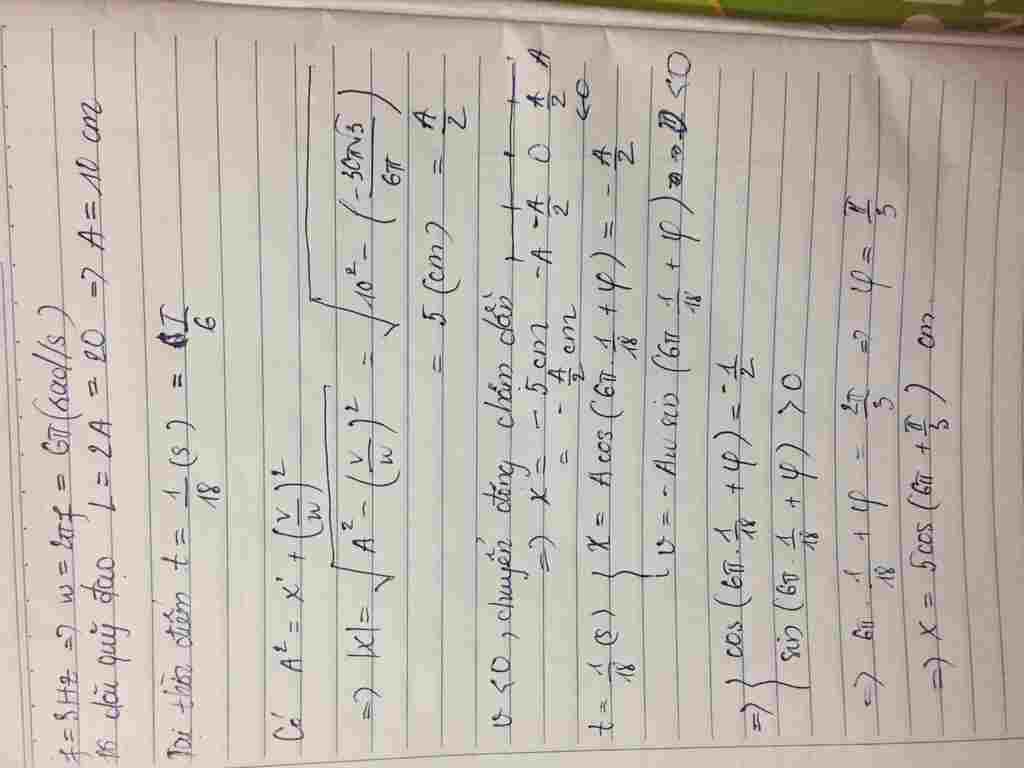 f = 3Hz => w = 2πf = 6π (rad/s)
dài quỹ đạo L = 2A = 20 => A = 10 cm
Tại thời điểm t = 1/18 (s) = T/6
Có A² = x² + (v/w)²
=> |x| = √(A² - (v/w)²) = √(10² - (-30π√3/6π))
= 5 (cm) = A/2
v < 0, chuyển động chậm dần
=> x = - 5 cm
= - A/2 cm
-A -A/2 0 A/2 A
t = 1/18 (s) } x = A cos (6π 1/18 + φ) = - A/2
v = - Aw sin (6π · 1/18 + φ) < 0
<0
=> { cos (6π · 1/18 + φ) = - 1/2
sin (6π · 1/18 + φ) > 0
=> 6π · 1/18 + φ = 2π/3 => φ = π/3
=> x = 5 cos (6π + π/3) cm